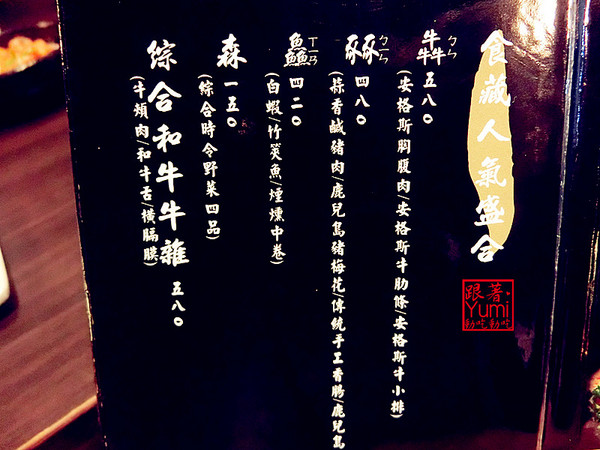 食藏人氣盛合
犇ㄅㄣ 五八〇
(安格斯胸腹肉/安格斯牛肋條/安格斯牛小排)
豩ㄅㄧㄣ 四八〇
(蒜香鹹豬肉/鹿兒島豬梅花/傳統手工香腸/鹿兒島
鱻ㄒㄧㄢ 四二〇
(白蝦/竹筴魚/煙燻中卷)
森 一五〇
(綜合時令野菜四品)
綜合和牛牛雜 五八〇
(牛頰肉/和牛舌/橫膈膜)
跟著
Yumi
動吃動吃